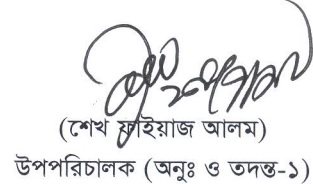 (শেখ ফাইয়াজ আলম)
উপপরিচালক (অনুঃ ও তদন্ত-১)